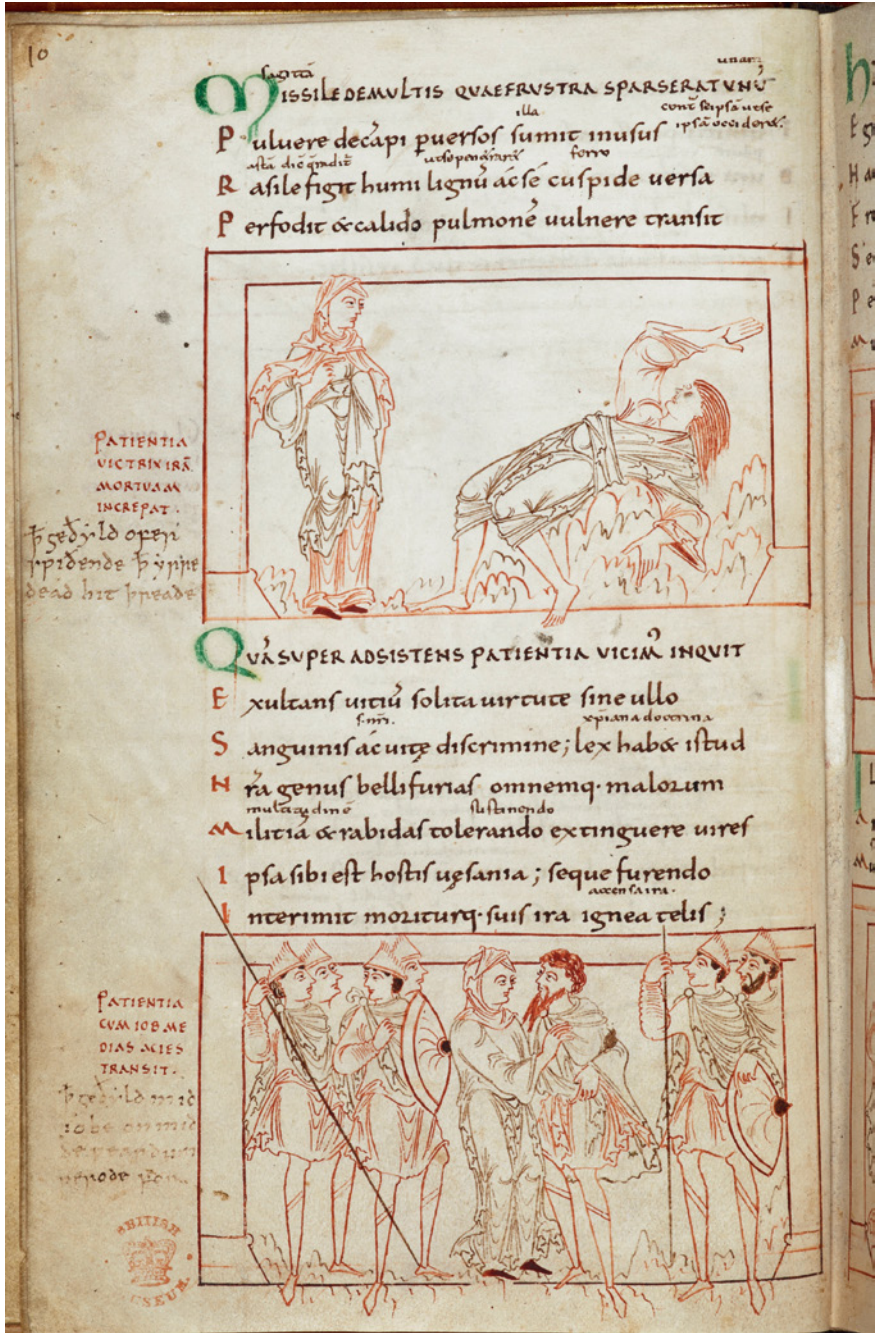 10
sagittā
unam
MISSILE DE MULTIS QUAE FRUSTRA SPARSERAT UNŪ
illa
contͣ se ipsā ut se
Puluere decāpi ꝑuersos sumit in usus
ipsā occideret.
ut se
ferro
Rasile figit humi lignū ac sē cuspide uersa
Perfodit & calido pulmonē uulnere transit
PATIENTIA
VICTRIX IRĀ
MORTUAM
INCREPAT.
ꝥ geðyld oferi
dead hit þreade
QUĀ SUPER ADSISTENS PATIENTIA VICIM' INQUIT
Exultans uitiū solita uirtute sine ullo
xp̄iana doctrina
Sanguinis ac uitę discrimine; lex hab& istud
Nrā genus belli furias omnemq· malorum
multitudinē
sustinendo
Militiā & rabidas tolerando extinguere uires
Ipsa sibi est hostis uęsania; seque furendo
accensa ira.
Interimit moriturq· suis ira ignea telis;
PATIENTIA
CUM IOB ME
DIAS ACIES
TRANSIT.
ꝥ geðyld mid
iobe on mid
BRITISH
MUSEUM